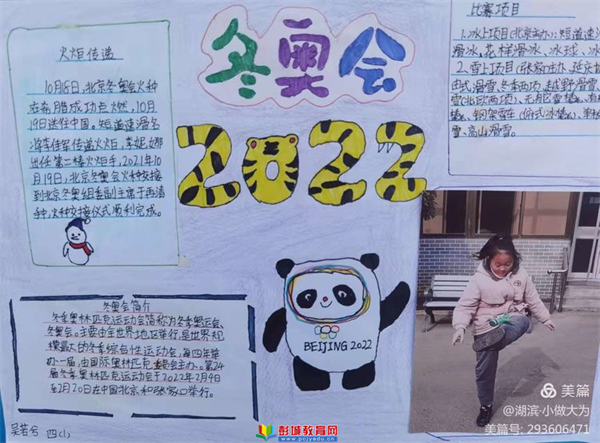 冬奥会
2022
火炬传递
10月18日,北京冬奥会火种
在希腊成功点燃,10月
19日送往中国。短道速滑名
将李佳军传递火炬,李妮娜
出任第二棒火炬手,2021年10
月19日,北京冬奥会火种交接
到北京冬奥组委副主席于再清
种,火种交接仪式顺利完成。
比赛项目
1.冰上项目(北京主办):短道速
滑冰、花样滑冰、冰球、冰
2.雪上项目(张家
由式滑雪、冬季两项、越野滑雪
雪(北欧两项)、无舵雪橇、
橇、钢架雪车(俯式冰橇)、
雪、高山滑雪。
冬奥会简介
冬季奥林匹克运动会简称为冬季奥运会、
冬奥会。主要由全世界地区举行,是世界规
模最大的冬季综合性运动会,每四年举
办一届,由国际奥林匹克委员会主办。第24
届冬季奥林匹克运动会于2022年2月4日
至2月20日在中国北京和张家口举行。
BEIJING 2022
吴若兮 四(1)
彭城教育网
www.pcjyedu.cn
美篇
@湖滨·小做大为
美篇号: 293606471